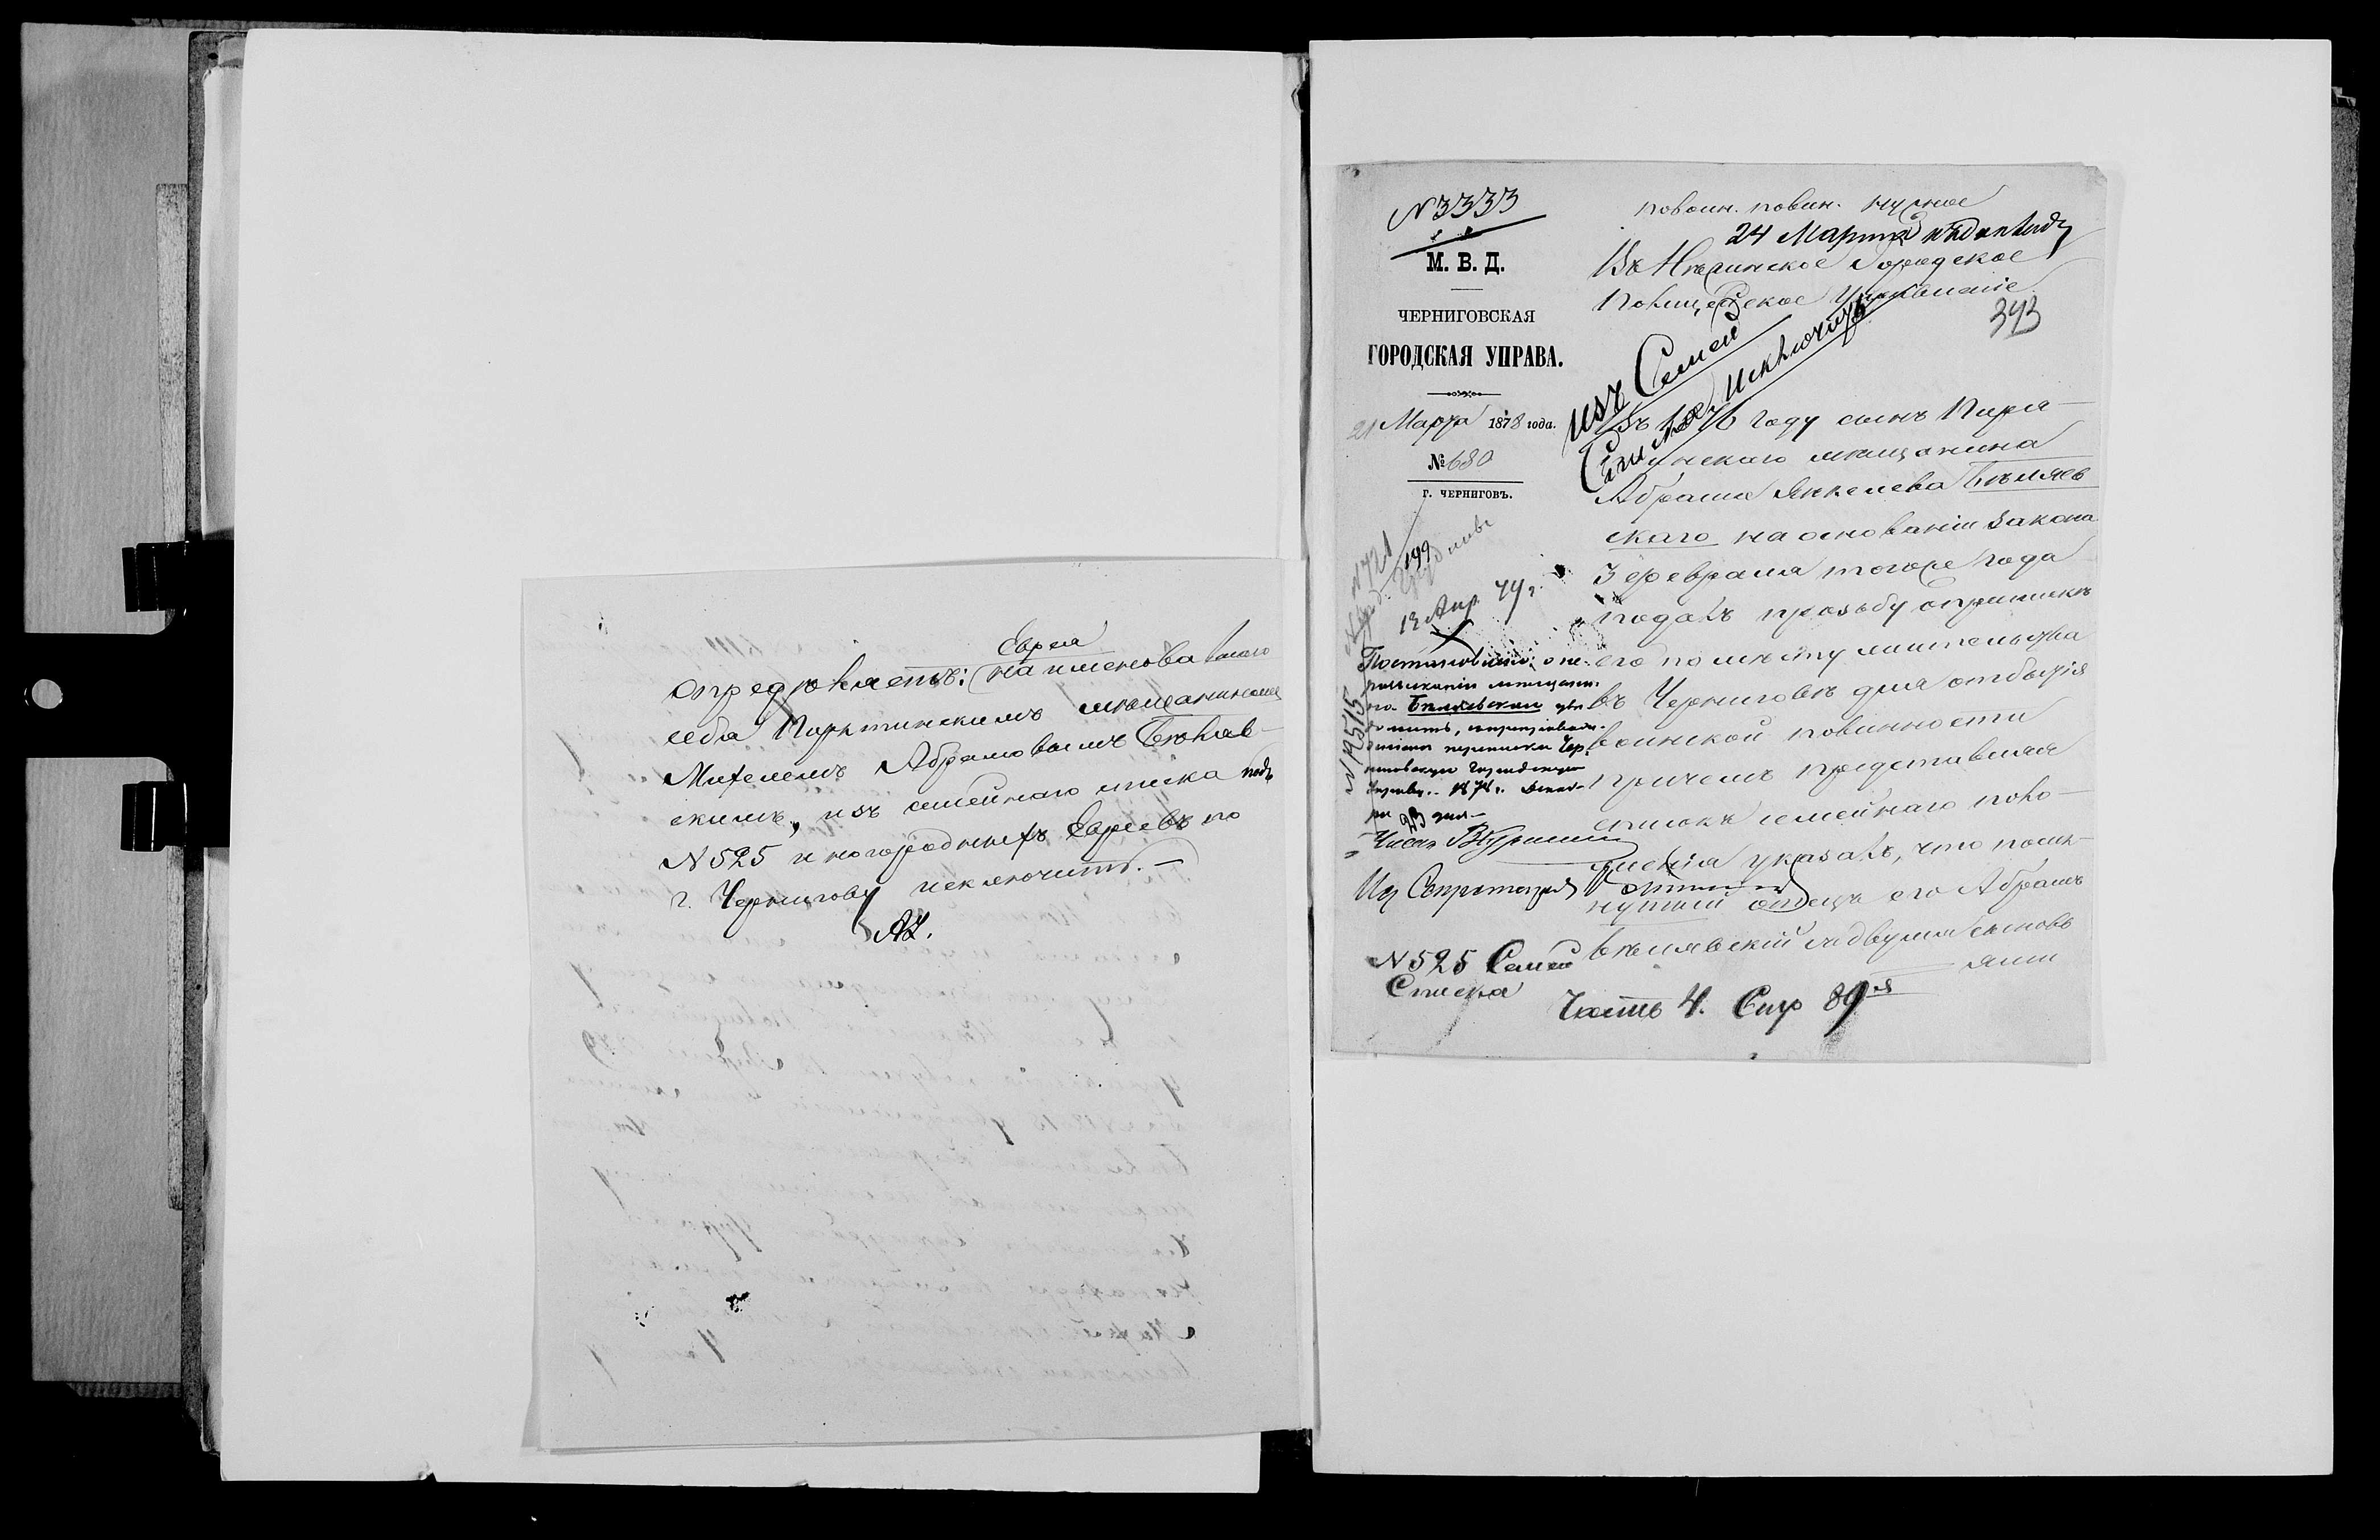 Еврея
опредѣляетъ: наименовавшаго
себя Пирятинскимъ мѣщаниномъ
Михелемъ Абрамовымъ Бѣляв-
скимъ, изъ семейнаго списка подъ
N 525 иногородныхъ Евреевъ по
г. Чернигову исключить. —
N 3333
М. В. Д.
ЧЕРНИГОВСКАЯ
ГОРОДСКАЯ УПРАВА.
21 Марта 1878 года.
№ 680
Г. ЧЕРНИГОВЪ.
N 721
199
12 Апр. 79 г.
N 19515
Постановленіе о пе-
мѣщани-
на Бѣлявскаго
переписки Чер-
ниговскую Городскую
Управу. 1878 г. Декаб-
ря 23 дня —
Членъ
Ид Секретаря
N 525 Семей
Списка
повоин. повин. нужное
24 Марта
Въ Нѣжинское Городское
Полицейское Управленіе
393
Изъ Семей
Списка Исключить
Въ 1876 году сынъ Пиря-
тинскаго мѣщанина
Абрама Янкелева Бѣляв
скаго на основаніи закона
3 Февраля того же года
подалъ прозьбу о припискѣ
его по мѣсту жительства
въ Черниговѣ для отбытія
воинской повинности
причемъ представляя
списокъ семейнаго поло-
женія указалъ, что помя-
нутый отецъ его Абрамъ
Бѣлявскій съ двумя сыновь
ями
Часть 4. Стр 89я